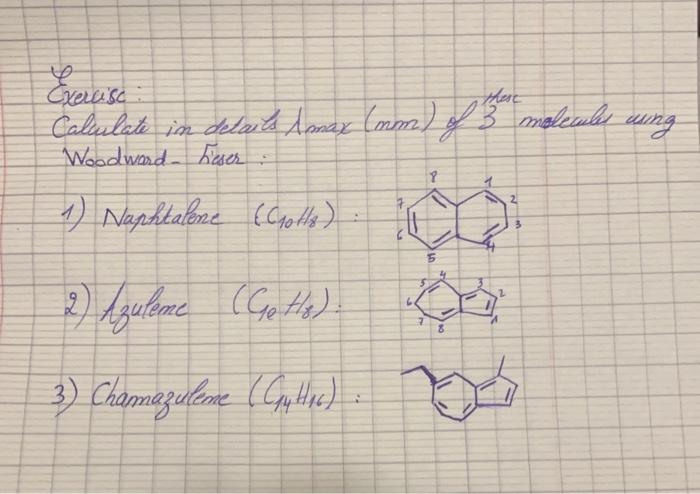 Exercise:
Calculate in details λmax (nm) of these 3 molecules using
Woodward-Fieser:
1) Naphtalene (C10H8):
8 1
7 2
6 3
5 4
2) Azulene (C10H8):
5 4 3
6 2
7 8 1
3) Chamazulene (C14H16):